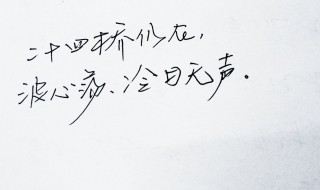 二十四桥仍在,
波心荡、冷月无声。